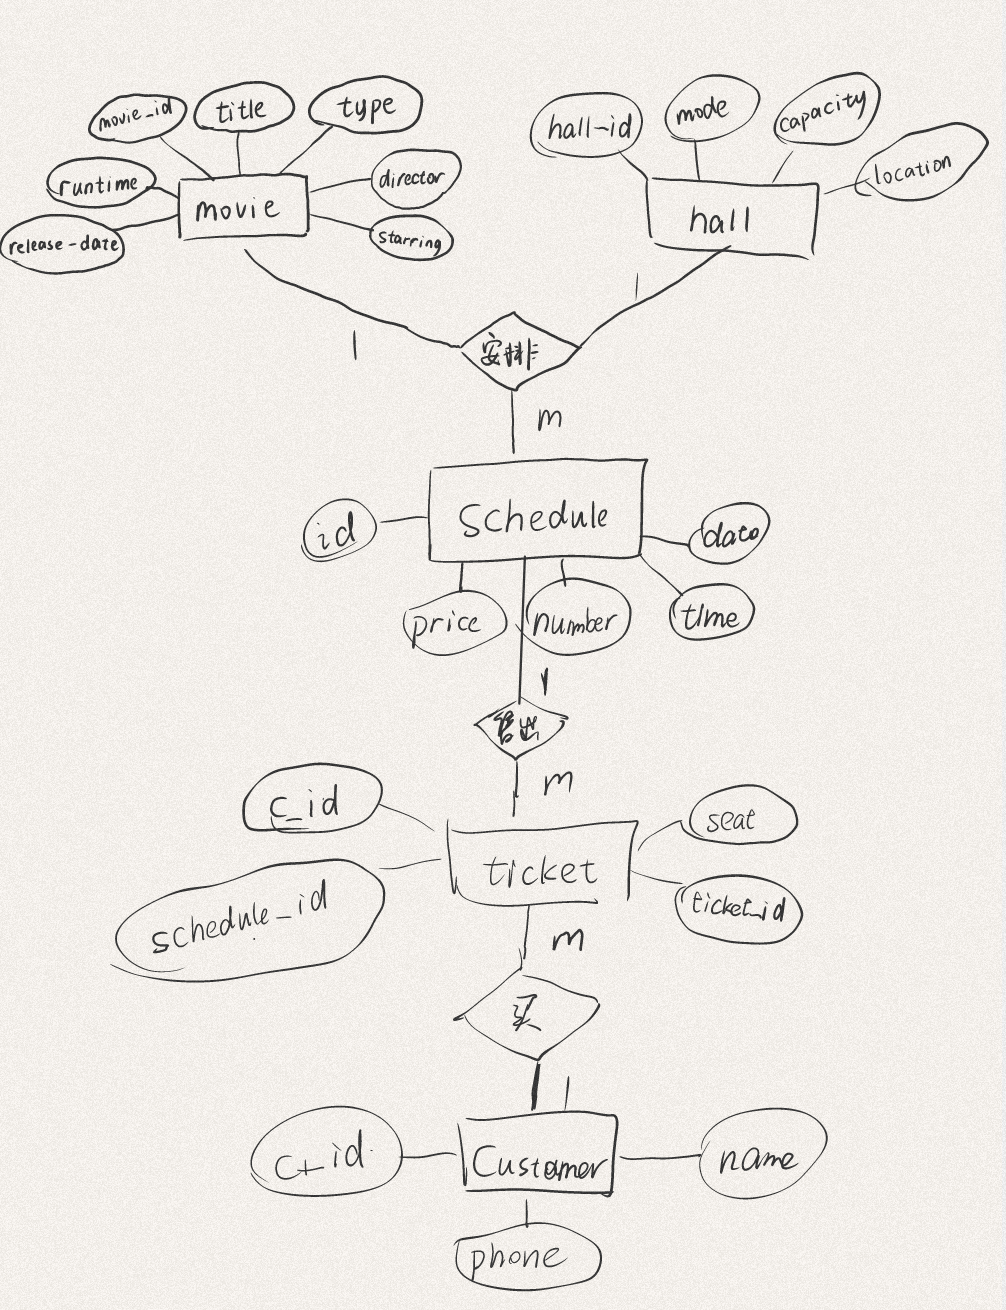 movie_id
title
type
runtime
movie
director
release-date
starring
hall-id
mode
capacity
location
hall
1
1
安排
m
Schedule
id
date
price
number
time
1
售出
m
c_id
seat
ticket
schedule_id
ticket_id
m
买
1
c_id
Customer
name
phone